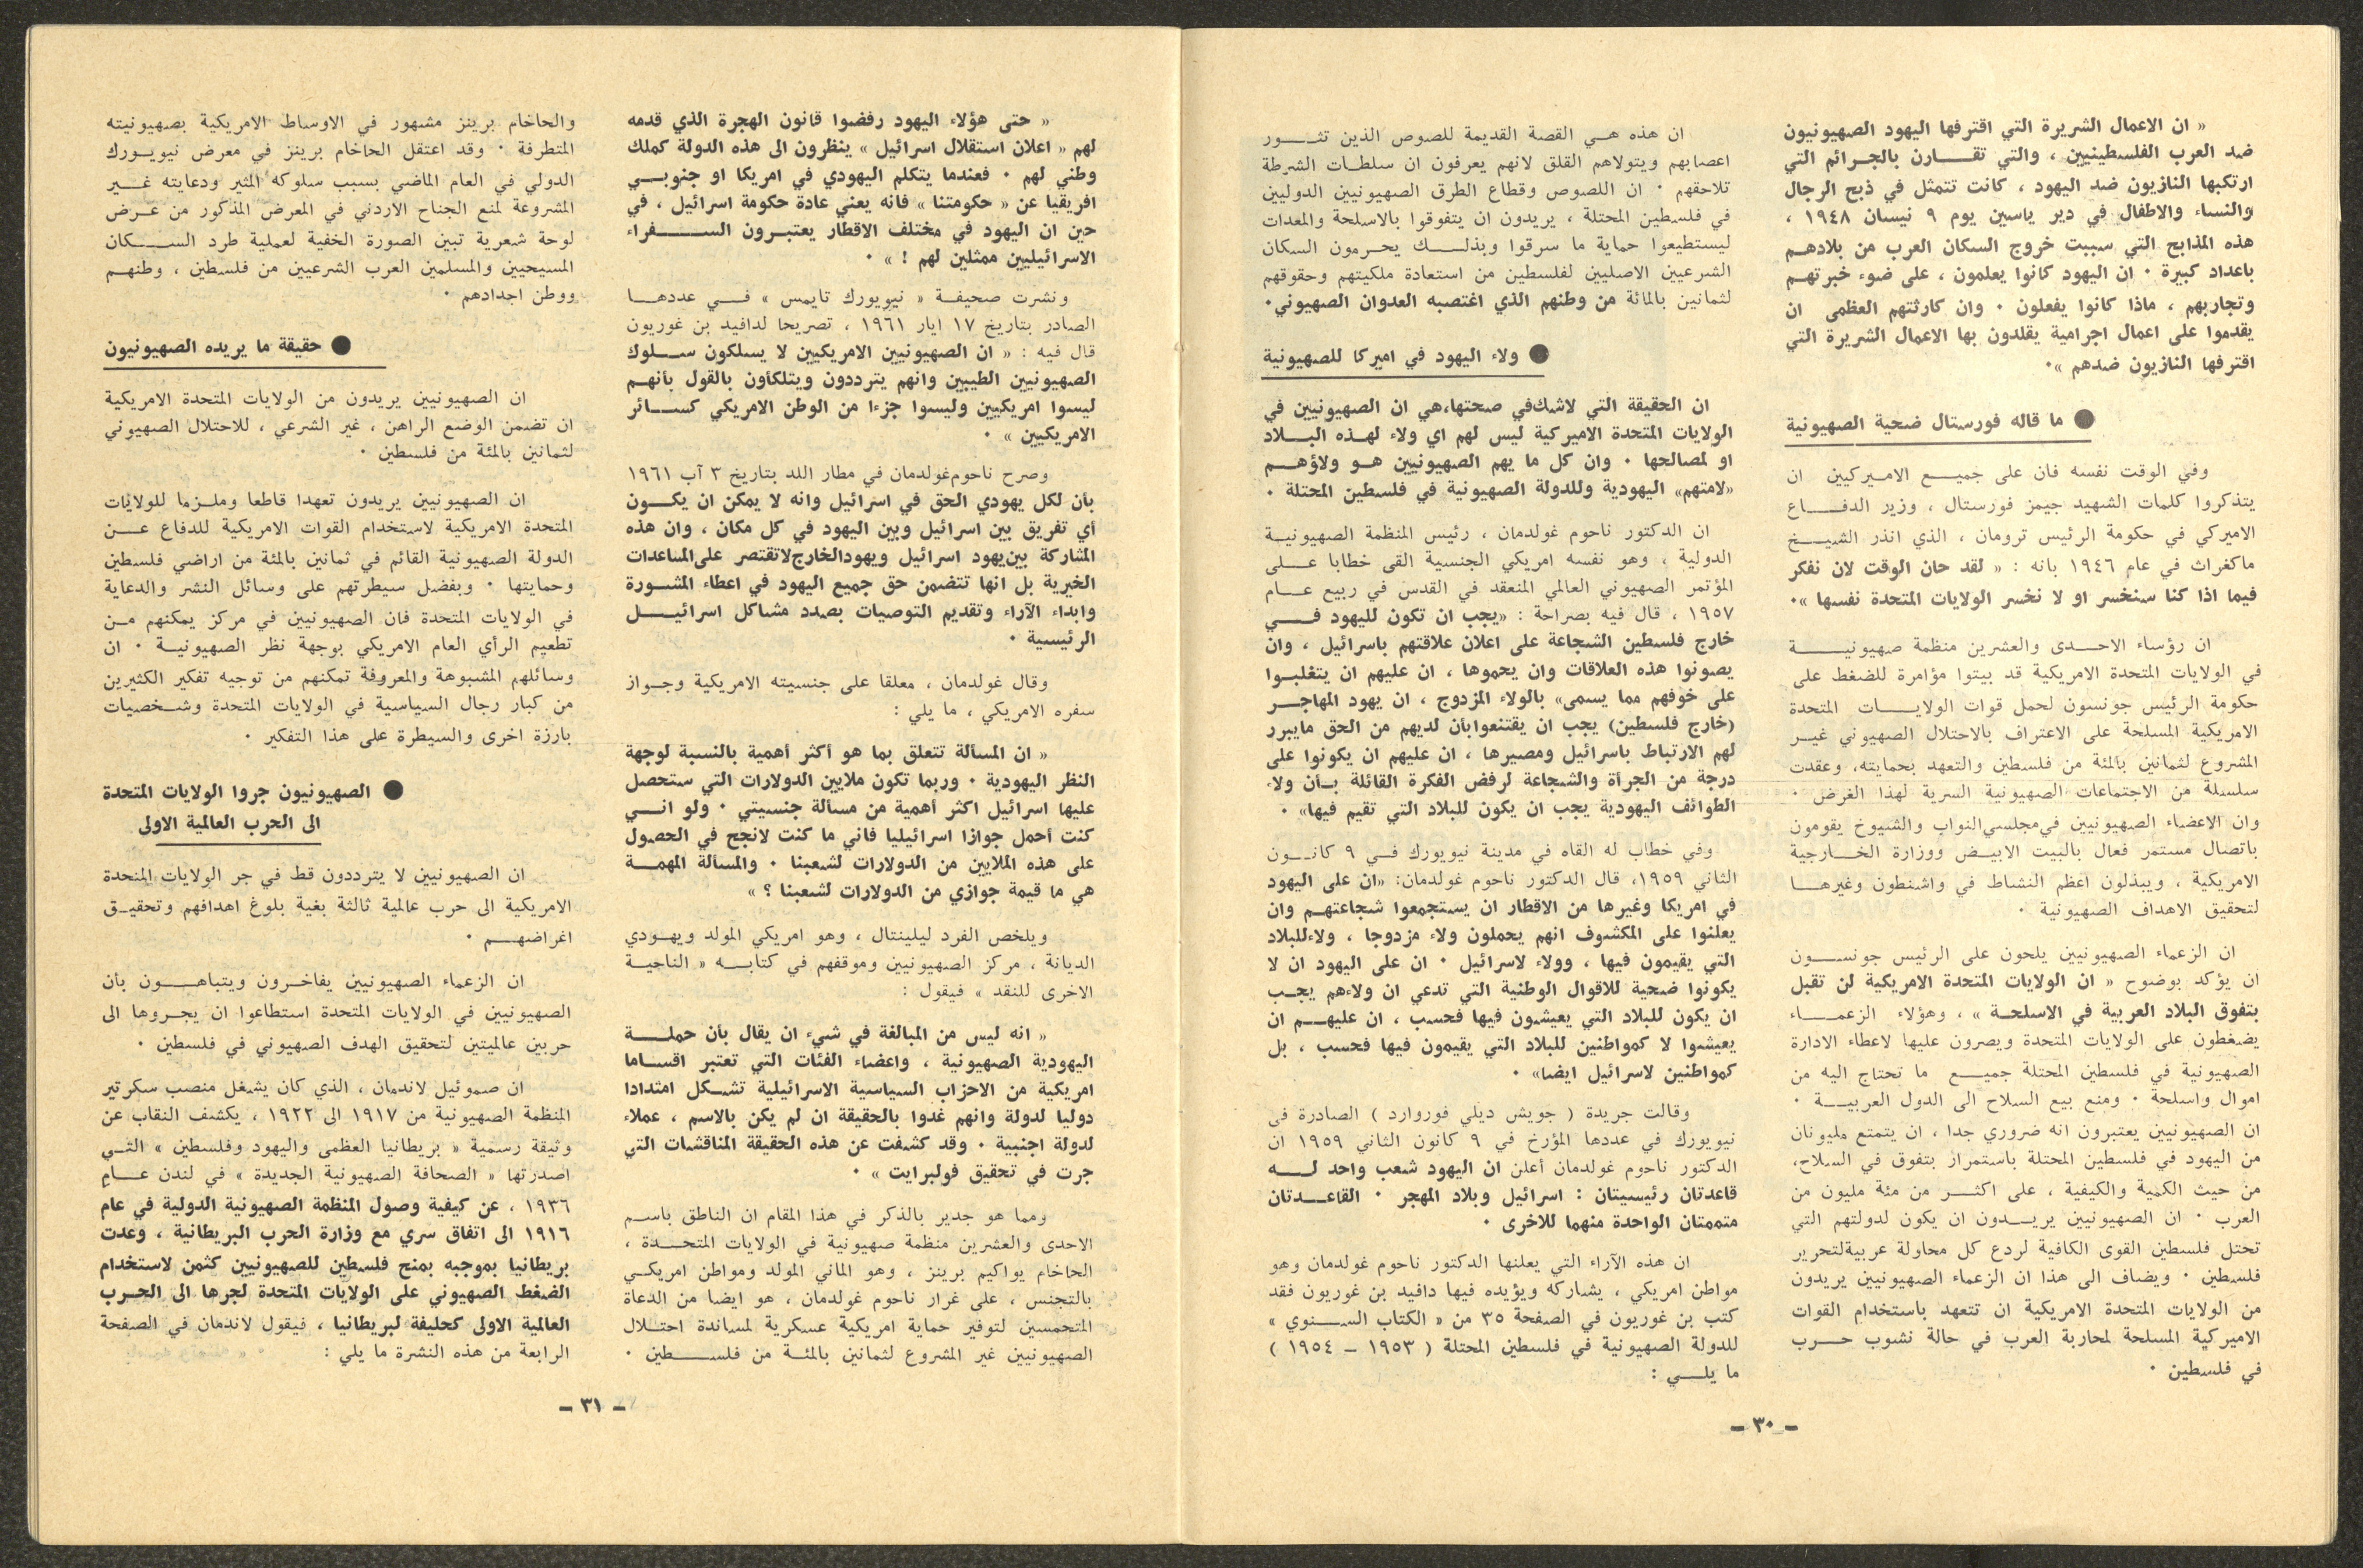 « ان الاعمال الشريرة التي اقترفها اليهود الصهيونيون
ضد العرب الفلسطينيين ، والتي تقـــارن بالجـرائم التي
ارتكبها النازيون ضد اليهود ، كانت تتمثل في ذبح الرجال
والنساء والاطفال في دير ياسين يوم ٩ نيسان ١٩٤٨ ،
هذه المذابح التي سببت خروج السكان العرب من بلادهـم
باعداد كبيرة ٠ ان اليهود كانوا يعلمون ، على ضوء خبرتهـم
وتجاربهم ، ماذا كانوا يفعلون ٠ وان كارثتهم العظمى ان
يقدموا على اعمال اجرامية يقلدون بها الاعمال الشريرة التي
اقترفها النازيون ضدهم »٠
● ما قاله فورستال ضحية الصهيونية
وفي الوقت نفسه فان على جميـــع الاميـركيين ان
يتذكروا كلمات الشهيد جيمز فورستال ، وزير الدفـــاع
الاميركي في حكومة الرئيس ترومان ، الذي انذر الشيـــخ
ماكغراث في عام ١٩٤٦ بانه : « لقد حان الوقت لان نفكر
فيما اذا كنا سنخسر او لا نخسر الولايات المتحدة نفسها »٠
ان رؤساء الاحـــدى والعشرين منظمة صهيونيـــــة
في الولايات المتحدة الامريكية قد بيتوا مؤامرة للضغط على
حكومة الرئيس جونسون لحمل قوات الولايـــات المتحدة
الامريكية المسلحة على الاعتراف بالاحتلال الصهيوني غيـر
المشروع لثمانين بالمئة من فلسطين والتعهد بحمايته، وعقدت
سلسلة من الاجتماعات الصهيونية السرية لهذا الغرض ٠
وان الاعضاء الصهيونيين في مجلسي النواب والشيوخ يقومون
باتصال مستمر فعال بالبيت الابيـض ووزارة الخـــارجية
الامريكية ، ويبذلون اعظم النشاط في واشنطون وغيرهـــا
لتحقيق الاهداف الصهيونية ٠
ان الزعماء الصهيونيين يلحون على الرئيس جونســـون
ان يؤكد بوضوح « ان الولايات المتحدة الامريكية لن تقبل
بتفوق البلاد العربية في الاسلحـة » ، وهؤلاء الزعمـــاء
يضغطون على الولايات المتحدة ويصرون عليها لاعطاء الادارة
الصهيونية في فلسطين المحتلة جميـــع ما تحتاج اليه من
اموال واسلحة ٠ ومنع بيع السلاح الى الدول العربيـــة ٠
ان الصهيونيين يعتبرون انه ضروري جدا ، ان يتمتع مليونان
من اليهود في فلسطين المحتلة باستمرار بتفوق في السلاح،
من حيث الكمية والكيفية ، على اكثـــر من مئة مليون من
العرب ٠ ان الصهيونيين يريـــدون ان يكون لدولتهم التي
تحتل فلسطين القوى الكافية لردع كل محاولة عربية لتحرير
فلسطين ٠ ويضاف الى هذا ان الزعماء الصهيونيين يريدون
من الولايات المتحدة الامريكية ان تتعهد باستخدام القوات
الاميركية المسلحة لمحاربة العرب في حالة نشوب حـــرب
في فلسطين ٠
ان هذه هـــي القصة القديمة للصوص الذين تثـــور
اعصابهم ويتولاهم القلق لانهم يعرفون ان سلطـات الشرطة
تلاحقهم ٠ ان اللصوص وقطاع الطرق الصهيونيين الدوليين
في فلسطين المحتلة ، يريدون ان يتفوقوا بالاسلحة والمعدات
ليستطيعوا حماية ما سرقوا وبذلـــك يحـرمون السكان
الشرعيين الاصليين لفلسطين من استعادة ملكيتهم وحقوقهم
لثمانين بالمائة من وطنهم الذي اغتصبه العدوان الصهيوني٠
● ولاء اليهود في اميركا للصهيونية
ان الحقيقة التي لاشك في صحتها، هي ان الصهيونيين في
الولايات المتحدة الاميركية ليس لهم اي ولاء لهـذه البـــلاد
او لمصالحها ٠ وان كل ما يهم الصهيونيين هـو ولاؤهـــم
«لامتهم» اليهودية وللدولة الصهيونية في فلسطين المحتلة ٠
ان الدكتور ناحوم غولدمان ، رئيس المنظمة الصهيونيـة
الدولية ، وهو نفسه امريكي الجنسية القى خطابا عـــلى
المؤتمر الصهيوني العالمي المنعقد في القدس في ربيع عـــام
١٩٥٧ ، قال فيه بصراحة : «يجب ان تكون لليهود فـــي
خارج فلسطين الشجاعة على اعلان علاقتهم باسرائيل ، وان
يصونوا هذه العلاقات وان يحموها ، ان عليهم ان يتغلبـوا
على خوفهم مما يسمى» بالولاء المزدوج ، ان يهود المهاجـــر
(خارج فلسطين) يجب ان يقتنعوا بأن لديهم من الحق مايبرر
لهم الارتباط باسرائيل ومصيرها ، ان عليهم ان يكونوا على
درجة من الجرأة والشجاعة لرفض الفكرة القائلة بـأن ولاء
الطوائف اليهودية يجب ان يكون للبلاد التي تقيم فيها» ٠
وفي خطاب له القاه في مدينة نيويورك فـــي ٩ كانـــون
الثاني ١٩٥٩، قال الدكتور ناحوم غولدمان: «ان على اليهود
في امريكا وغيرها من الاقطار ان يستجمعوا شجاعتهـم وان
يعلنوا على المكشوف انهم يحملون ولاء مزدوجا ، ولاء للبلاد
التي يقيمون فيها ، وولاء لاسرائيل ٠ ان على اليهود ان لا
يكونوا ضحية للاقوال الوطنية التي تدعي ان ولاءهم يجـب
ان يكون للبلاد التي يعيشون فيها فحسب ، ان عليهـــم ان
يعيشوا لا كمواطنين للبلاد التي يقيمون فيها فحسب ، بل
كمواطنين لاسرائيل ايضا» ٠
وقالت جريدة ( جويش ديلي فوروارد ) الصادرة في
نيويورك في عددها المؤرخ في ٩ كانون الثاني ١٩٥٩ ان
الدكتور ناحوم غولدمان أعلن ان اليهود شعب واحد لـــه
قاعدتان رئيسيتان : اسرائيل وبلاد المهجر ٠ القاعـــدتان
متممتان الواحدة منهما للاخرى ٠
ان هذه الآراء التي يعلنها الدكتور ناحوم غولدمان وهو
مواطن امريكي ، يشاركه ويؤيده فيها دافيد بن غوريون فقد
كتب بن غوريون في الصفحة ٣٥ من « الكتاب الســـنوي »
للدولة الصهيونية في فلسطين المحتلة ( ١٩٥٣ ـ ١٩٥٤ )
ما يلـــي :
ـ ٣٠ ـ
« حتى هؤلاء اليهود رفضوا قانون الهجرة الذي قدمه
لهم « اعلان استقلال اسرائيل » ينظرون الى هذه الدولة كملك
وطني لهم ٠ فعندما يتكلم اليهودي في امريكا او جنوبـــي
افريقيا عن « حكومتنا » فانه يعني عادة حكومة اسرائيل ، في
حين ان اليهود في مختلف الاقطار يعتبـرون الســـفراء
الاسرائيليين ممثلين لهم ! » ٠
ونشرت صحيفـة « نيويورك تايمس » فـــي عددهـــا
الصادر بتاريخ ١٧ ايار ١٩٦١ ، تصريحا لدافيد بن غوريون
قال فيه : « ان الصهيونيين الامريكيين لا يسلكون ســـلوك
الصهيونيين الطيبين وانهم يترددون ويتلكأون بالقول بأنهـم
ليسوا امريكيين وليسوا جزءا من الوطن الامريكي كســـائر
الامريكيين » ٠
وصرح ناحوم غولدمان في مطار اللد بتاريخ ٣ آب ١٩٦١
بأن لكل يهودي الحق في اسرائيل وانه لا يمكن ان يكـــون
أي تفريق بين اسرائيل وبين اليهود في كل مكان ، وان هذه
المشاركة بين يهود اسرائيل ويهود الخارج لاتقتصر على المساعدات
الخيرية بل انها تتضمن حق جميع اليهود في اعطاء المشـورة
وابداء الآراء وتقديم التوصيات بصدد مشاكل اسرائيـــل
الرئيسية ٠
وقال غولدمان ، معلقا على جنسيته الامريكية وجـواز
سفره الامريكي ، ما يلي :
« ان المسألة تتعلق بما هو أكثر أهمية بالنسبة لوجهة
النظر اليهودية ٠ وربما تكون ملايين الدولارات التي ستحصل
عليها اسرائيل اكثر أهمية من مسألة جنسيتي ٠ ولو انـــي
كنت أحمل جوازا اسرائيليا فاني ما كنت لانجح في الحصول
على هذه الملايين من الدولارات لشعبنا ٠ والمسألة المهمـــة
هي ما قيمة جوازي من الدولارات لشعبنا ؟ »
ويلخص الفرد ليلينتال ، وهو امريكي المولد ويهـودي
الديانة ، مركز الصهيونيين وموقفهم في كتابـــه « الناحيـة
الاخرى للنقد » فيقول :
« انه ليس من المبالغة في شيء ان يقال بان حملـــة
اليهودية الصهيونية ، واعضاء الفئات التي تعتبر اقسـاما
امريكية من الاحزاب السياسية الاسرائيلية تشـكل امتدادا
دوليا لدولة وانهم غدوا بالحقيقة ان لم يكن بالاسم ، عملاء
لدولة اجنبية ٠ وقد كشفت عن هذه الحقيقة المناقشات التي
جرت في تحقيق فولبرايت » ٠
ومما هو جدير بالذكر في هذا المقام ان الناطق باسـم
الاحدى والعشرين منظمة صهيونية في الولايات المتحـــدة ،
الحاخام يواكيم برينز ، وهو الماني المولد ومواطن امريكـي
بالتجنس ، على غرار ناحوم غولدمان ، هو ايضا من الدعاة
المتحمسين لتوفير حماية امريكية عسكرية لمساندة احتـلال
الصهيونيين غير المشروع لثمانين بالمئـة من فلســـطين ٠
والحاخام برينز مشهور في الاوساط الامريكية بصهيونيته
المتطرفة ٠ وقد اعتقل الحاخام برينز في معرض نيويـورك
الدولي في العام الماضي بسبب سلوكه المثير ودعايته غـــير
المشروعة لمنع الجناح الاردني في المعرض المذكور من عـرض
لوحة شعرية تبين الصورة الخفية لعملية طرد الســـكان
المسيحيين والمسلمين العرب الشرعيين من فلسطين ، وطنهـم
ووطن اجدادهم ٠
● حقيقة ما يريده الصهيونيون
ان الصهيونيين يريدون من الولايات المتحدة الامريكية
ان تضمن الوضع الراهن ، غير الشرعي ، للاحتلال الصهيوني
لثمانين بالمئة من فلسطين ٠
ان الصهيونيين يريدون تعهدا قاطعا وملـزما للولايات
المتحدة الامريكية لاستخدام القوات الامريكية للدفاع عـــن
الدولة الصهيونية القائم في ثمانين بالمئة من اراضي فلسطين
وحمايتها ٠ وبفضل سيطرتهم على وسائل النشر والدعاية
في الولايات المتحدة فان الصهيونيين في مركز يمكنهم مـن
تطعيم الرأي العام الامريكي بوجهة نظر الصهيونيـة ٠ ان
وسائلهم المشبوهة والمعروفة تمكنهم من توجيه تفكير الكثيرين
من كبار رجال السياسية في الولايات المتحدة وشـخصيات
بارزة اخرى والسيطرة على هذا التفكير ٠
● الصهيونيون جروا الولايات المتحدة
الى الحرب العالمية الاولى
ان الصهيونيين لا يترددون قط في جر الولايات المتحدة
الامريكية الى حرب عالمية ثالثة بغية بلوغ اهدافهم وتحقيـق
اغراضهـــم ٠
ان الزعماء الصهيونيين يفاخـرون ويتباهـــون بأن
الصهيونيين في الولايات المتحدة استطاعوا ان يجـروها الى
حربين عالميتين لتحقيق الهدف الصهيوني في فلسطين ٠
ان صموئيل لاندمان ، الذي كان يشغل منصب سكرتير
المنظمة الصهيونية من ١٩١٧ الى ١٩٢٢ ، يكشف النقاب عن
وثيقة رسمية « بريطانيا العظمى واليهود وفلسطين » التـي
اصدرتها « الصحافة الصهيونية الجديدة » في لندن عـــام
١٩٣٦ ، عن كيفية وصول المنظمة الصهيونية الدولية في عام
١٩١٦ الى اتفاق سري مع وزارة الحرب البريطانية ، وعدت
بريطانيا بموجبه بمنح فلسطين للصهيونيين كثمن لاستخدام
الضغط الصهيوني على الولايات المتحدة لجرها الى الحـرب
العالمية الاولى كحليفة لبريطانيا ، فيقول لاندمان في الصفحة
الرابعة من هذه النشرة ما يلي :
ـ ٣١ ـ